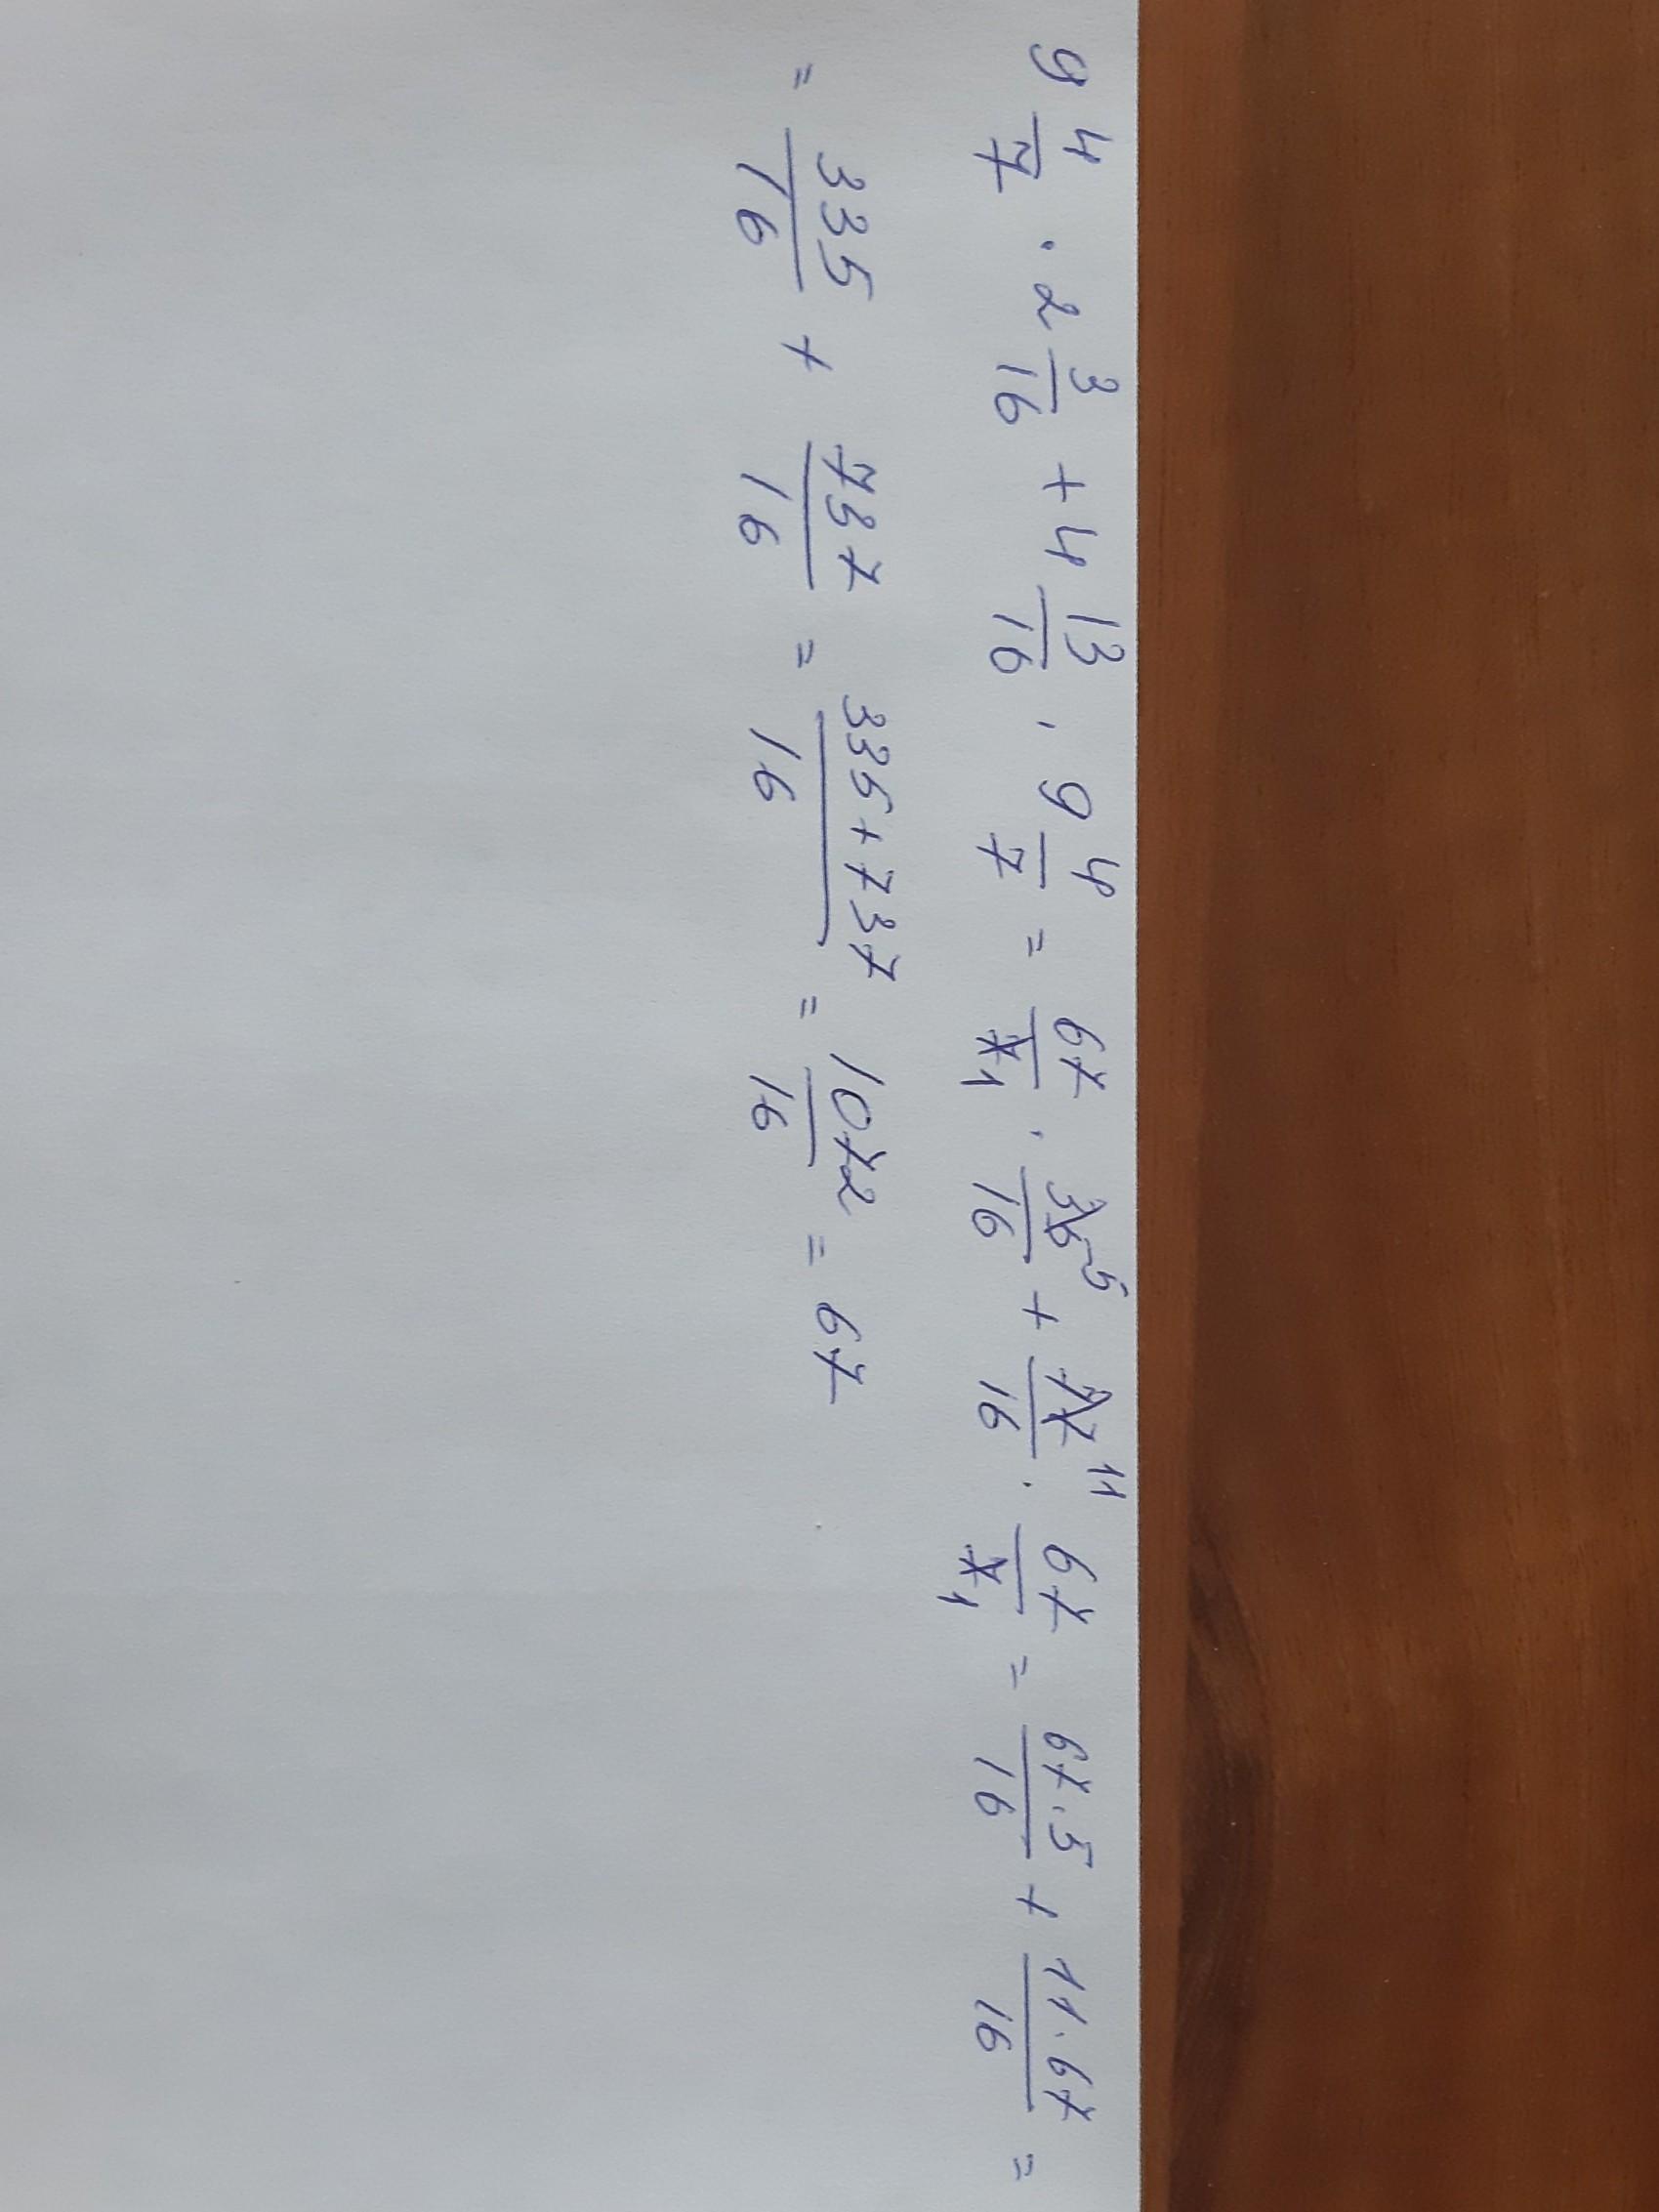 9 4/7 · 2 3/16 + 4 13/16 · 9 4/7 = 67/7 1 · 35 5/16 + 77 11/16 · 67/7 1 = 67·5/16 + 11·67/16 =
= 335/16 + 737/16 = 335+737/16 = 1072/16 = 67